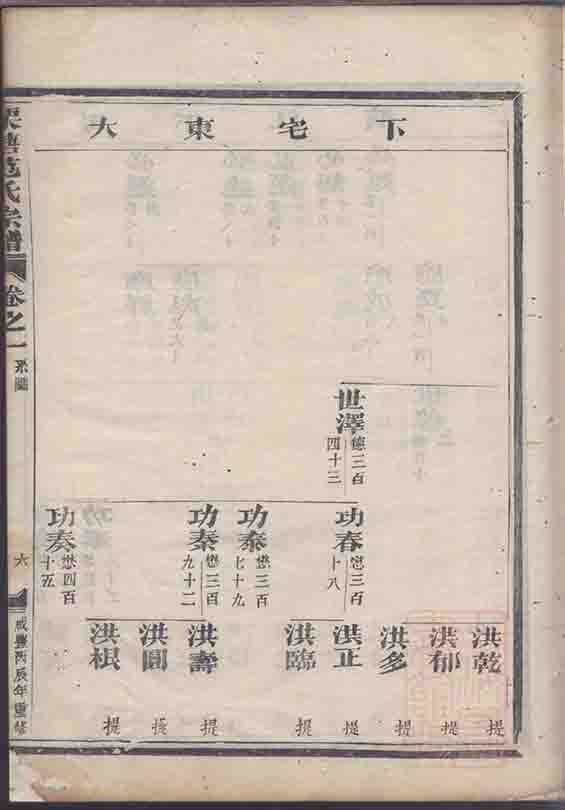 下宅東大
世澤
德三百
四十三
功春
懋三百
十八
功泰
懋三百
七十九
功秦
懋三百
九十二
功奏
懋四百
十五
洪乾 提
洪郁 提
洪多 提
洪正 提
洪臨 提
洪壽 提
洪圓 提
洪根 提
范氏宗譜
卷之一
系圖
六
咸豐丙辰年重修